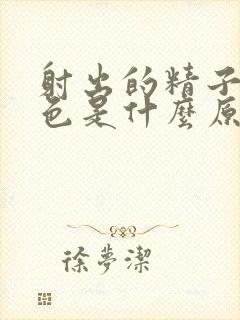 射出的精子
色是什麼原
徐夢潔